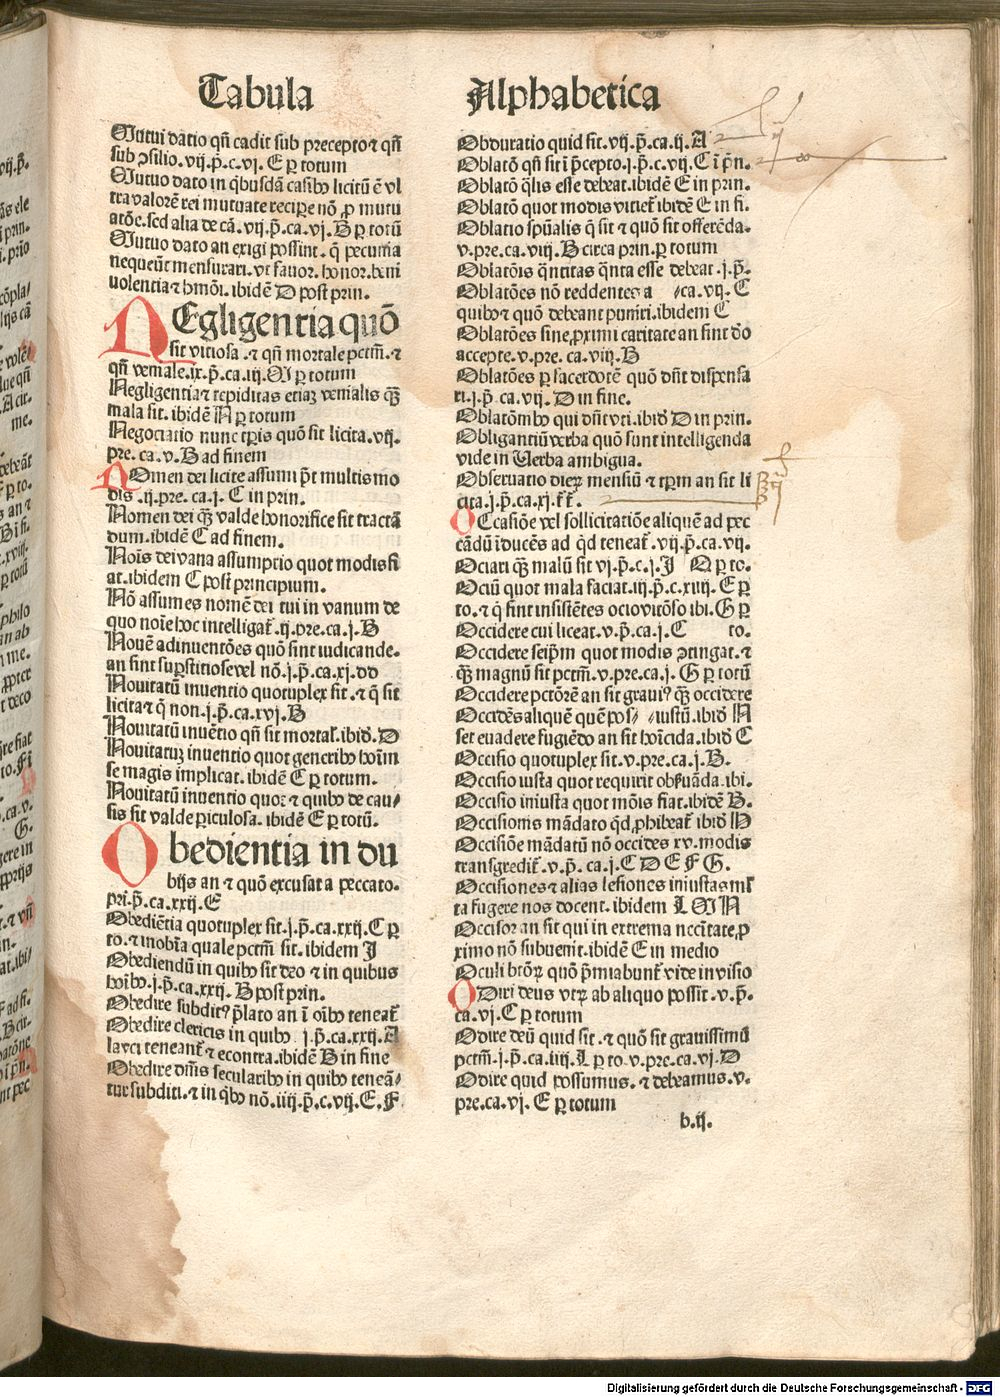 Tabula
Mutui datio qn̄ cadit sub precepto ⁊ qn̄
sub ꝯsilio. vij. p̄. c. vj. E ꝑ totum
Mutuo dato in qͥbusdā casibꝰ licitū ē vl
tra valorē rei mutuate recipe nō ꝓ mutu
vij. p̄. ca. vj. B ꝑ totū
Mutuo dato an exigi possint. q̄ pecunia
nequeūt mensurari. vt fauor. honor. beni
uolentia ⁊ hm̄oi. ibidē D post prin.
NEgligentia quō
sit vitiosa. ⁊ qn̄ mortale pctm̄. ⁊
qn̄ veniale. ix. p̄. ca. iij. M ꝑ totum
Negligentia ⁊ tepiditas etiaꝫ venialis qͣꝫ
mala sit. ibidē N ꝑ totum
Negociatio nunc tꝑis quō sit licita. vij.
pre. ca. v. B ad finem
NOmen dei licite assumi pt̄ multis mo
dis. ij. pre. ca. j. C in prin.
Nomen dei qͣꝫ valde honorifice sit tractā
dum. ibidē C ad finem.
Noīs dei vana assumptio quot modis fi
at. ibidem C post principium.
Nō assumes nomē dei tui in vanum de
quo noīe hoc intelligat̄. ij. pre. ca. j. B
Nouē adinuentōes quō sint iudicande.
an sint suꝑstitiose vel nō. j. p̄. ca. xj. dd
Nouitatū inuentio quotuplex sit. ⁊ q̄ sit
licita ⁊ q̄ non. j. p̄. ca. xvj. B
Nouitatū inuētio qn̄ sit mortal̄. ibid̄. D
Nouitatuꝫ inuentio quot generibꝰ hoīm
se magis implicat. ibidē C ꝑ totum.
Nouitatū inuentio quot ⁊ quibꝰ de cau/
sis sit valde ꝑiculosa. ibidē E ꝑ totū.
Obedientia in du
bijs an ⁊ quō excusat a peccato.
pri. p̄. ca. xxij. E
Obediētia quotuplex sit. j. p̄. ca. xxij. C ꝑ
to. ⁊ inobīa quale pctm̄ sit. ibidem J
Obediendū in quibꝰ sit deo ⁊ in quibus
hoībꝰ. j. p̄. ca. xxij. B post prin.
Obedire subditꝰ p̄lato an ī oībꝰ teneat̄
Obedire clericis in quibꝰ j. p̄. ca. xxij. A
layci teneant̄ ⁊ econtra. ibidē B in fine
Obedire dn̄is secularibꝰ in quibꝰ teneā/
tur subditi. ⁊ in qͥbꝰ nō. iiij. p̄. c. vij. E. F
Alphabetica
Obduratio quid sit. vij. p̄. ca. ij. A
Oblatō qn̄ sit ī p̄cepto. j. p̄. c. vij. C ī pͥn.
Oblatō qͣlis esse debeat. ibidē E in prin.
Oblatō quot modis vitiet̄ ibidē E in fi.
Oblatio spūalis q̄ sit ⁊ quō sit offerēda.
v. pre. ca. viij. B circa prin. ꝑ totum
Oblatōis qͣntitas qͣnta esse debeat. j. p̄.
Oblatōes nō reddentes a ca. vij. C
quibꝰ ⁊ quō debeant puniri. ibidem C
Oblatōes sine ꝓximi caritate an sint d̄o
accepte. v. pre. ca. viij. B
Oblatōes ꝑ sacerdotē quō dn̄t dispensa
ri. j. p̄. ca. vij. D in fine.
Oblatōibꝰ qui dn̄t vti. ibid̄ D in prin.
Obligantiū verba quō sunt intelligenda
vide in Verba ambigua.
Obseruatio dierꝝ mensiū ⁊ tꝑm an sit li
cita. j. p̄. ca. xj. ff.
OCcasiōe vel sollicitatiōe aliquē ad pec
cādū īducēs ad qͥd teneat̄. vij. p̄. ca. vij.
Ociari qͣꝫ malū sit vj. p̄. c. j. J Q ꝑ to.
Ociū quot mala faciat. iij. p̄. c. xiiij. E ꝑ
to. ⁊ q̄ sint insistētes ocio vitōso ibi. G ꝑ
Occidere cui liceat. v. p̄. ca. j. C to.
Occidere seip̄m quot modis ꝯtingat. ⁊
qͣꝫ magnū sit pctm̄. v. pre. ca. j. G ꝑ totū
Occidere pctōrē an sit grauiꝰ qͣꝫ occidere
Occidēs aliquē quē pos/ /iustū. ibid̄ N
set euadere fugiēdo an sit hoīcida. ibid̄ C
Occisio quotuplex sit. v. pre. ca. j. B.
Occisio iusta quot requirit obẜuāda. ibi.
Occisio iniusta quot mōis fiat. ibidē B.
Occisionis mādato qͥd ꝓhibeat̄ ibid̄ H
Occisiōe mādatū nō occides xv. modis
transgredit̄. v. p̄. ca. j. C D E F G.
Occisiones ⁊ alias lesiones iniustas ml̄
ta fugere nos docent. ibidem L M N
Occisor an sit qui in extrema nccītate ꝓ
ximo nō subuenit. ibidē E in medio
Oculi btōrꝝ quō p̄miabunt̄ vide in visio
ODiri deus vtrꝝ ab aliquo possit. v. p̄.
ca. vj. C ꝑ totum
Odire deū quid sit. ⁊ quō sit grauissimū
pctm̄. j. p̄. ca. iiij. L ꝑ to. v. pre. ca. vj. D
Odire quid possumus. ⁊ debeamus. v.
pre. ca. vj. E ꝑ totum
b. ij.
Digitalisierung gefördert durch die Deutsche Forschungsgemeinschaft - DFG